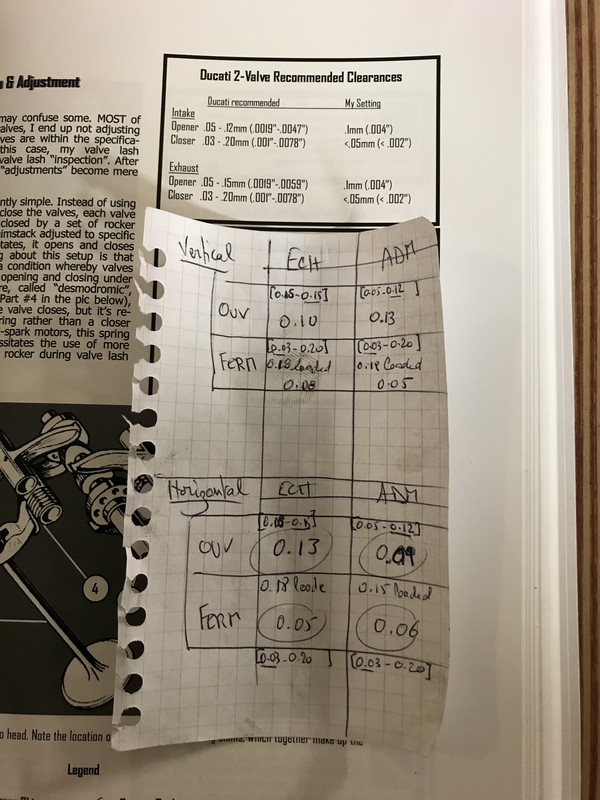 & Adjustment
may confuse some. MOST of
alves, I end up not adjusting
ves are within the specifica-
this case, my valve lash
valve lash "inspection". After
"adjustments" become mere
ntly simple. Instead of using
close the valves, each valve
closed by a set of rocker
imstack adjusted to specific
tates, it opens and closes
g about this setup is that
a condition whereby valves
opening and closing under
re, called "desmodromic",
Part #4 in the pic below),
e valve closes, but it's re-
ring rather than a closer
-spark motors, this spring
ssitates the use of more
rocker during valve lash
4
o head. Note the location o
Legend
Ducati 2-Valve Recommended Clearances
Ducati recommended My Setting
Intake
Opener .05 - .12mm (.0019"-.0047") .1mm (.004")
Closer .03 - .20mm (.001"-.0078") <.05mm (< .002")
Exhaust
Opener .05 - .15mm (.0019"-.0059") .1mm (.004")
Closer .03 - .20mm (.001"-.0078") <.05mm (< .002")
Vertical ECH ADM
[0.05-0.15] [0.05-0.12]
OUV 0.10 0.13
[0.03-0.20] [0.03-0.20]
FERM 0.18 loaded 0.18 loaded
0.08 0.05
Horizontal ECH ADM
[0.05-0.15] [0.05-0.12]
OUV 0.13 0.09
0.18 loade 0.15 loaded
FERM 0.05 0.06
[0.03-0.20 [0.03-0.20]
which together make up the